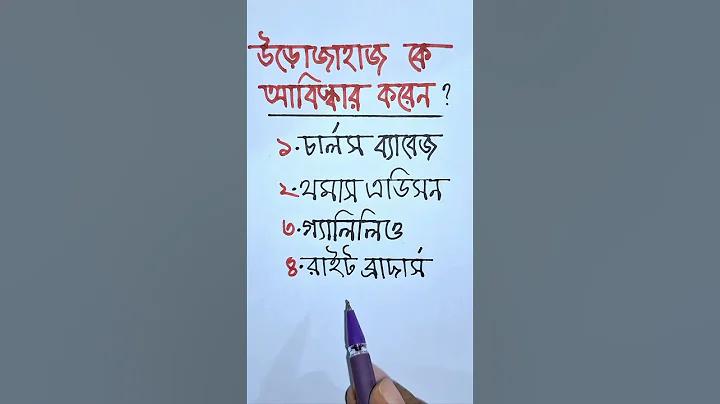 উড়োজাহাজ কে
আবিস্কার করেন ?
১. চার্লস ব্যাবেজ
২. থমাস এডিসন
৩. গ্যালিলিও
৪. রাইট ব্রাদার্স